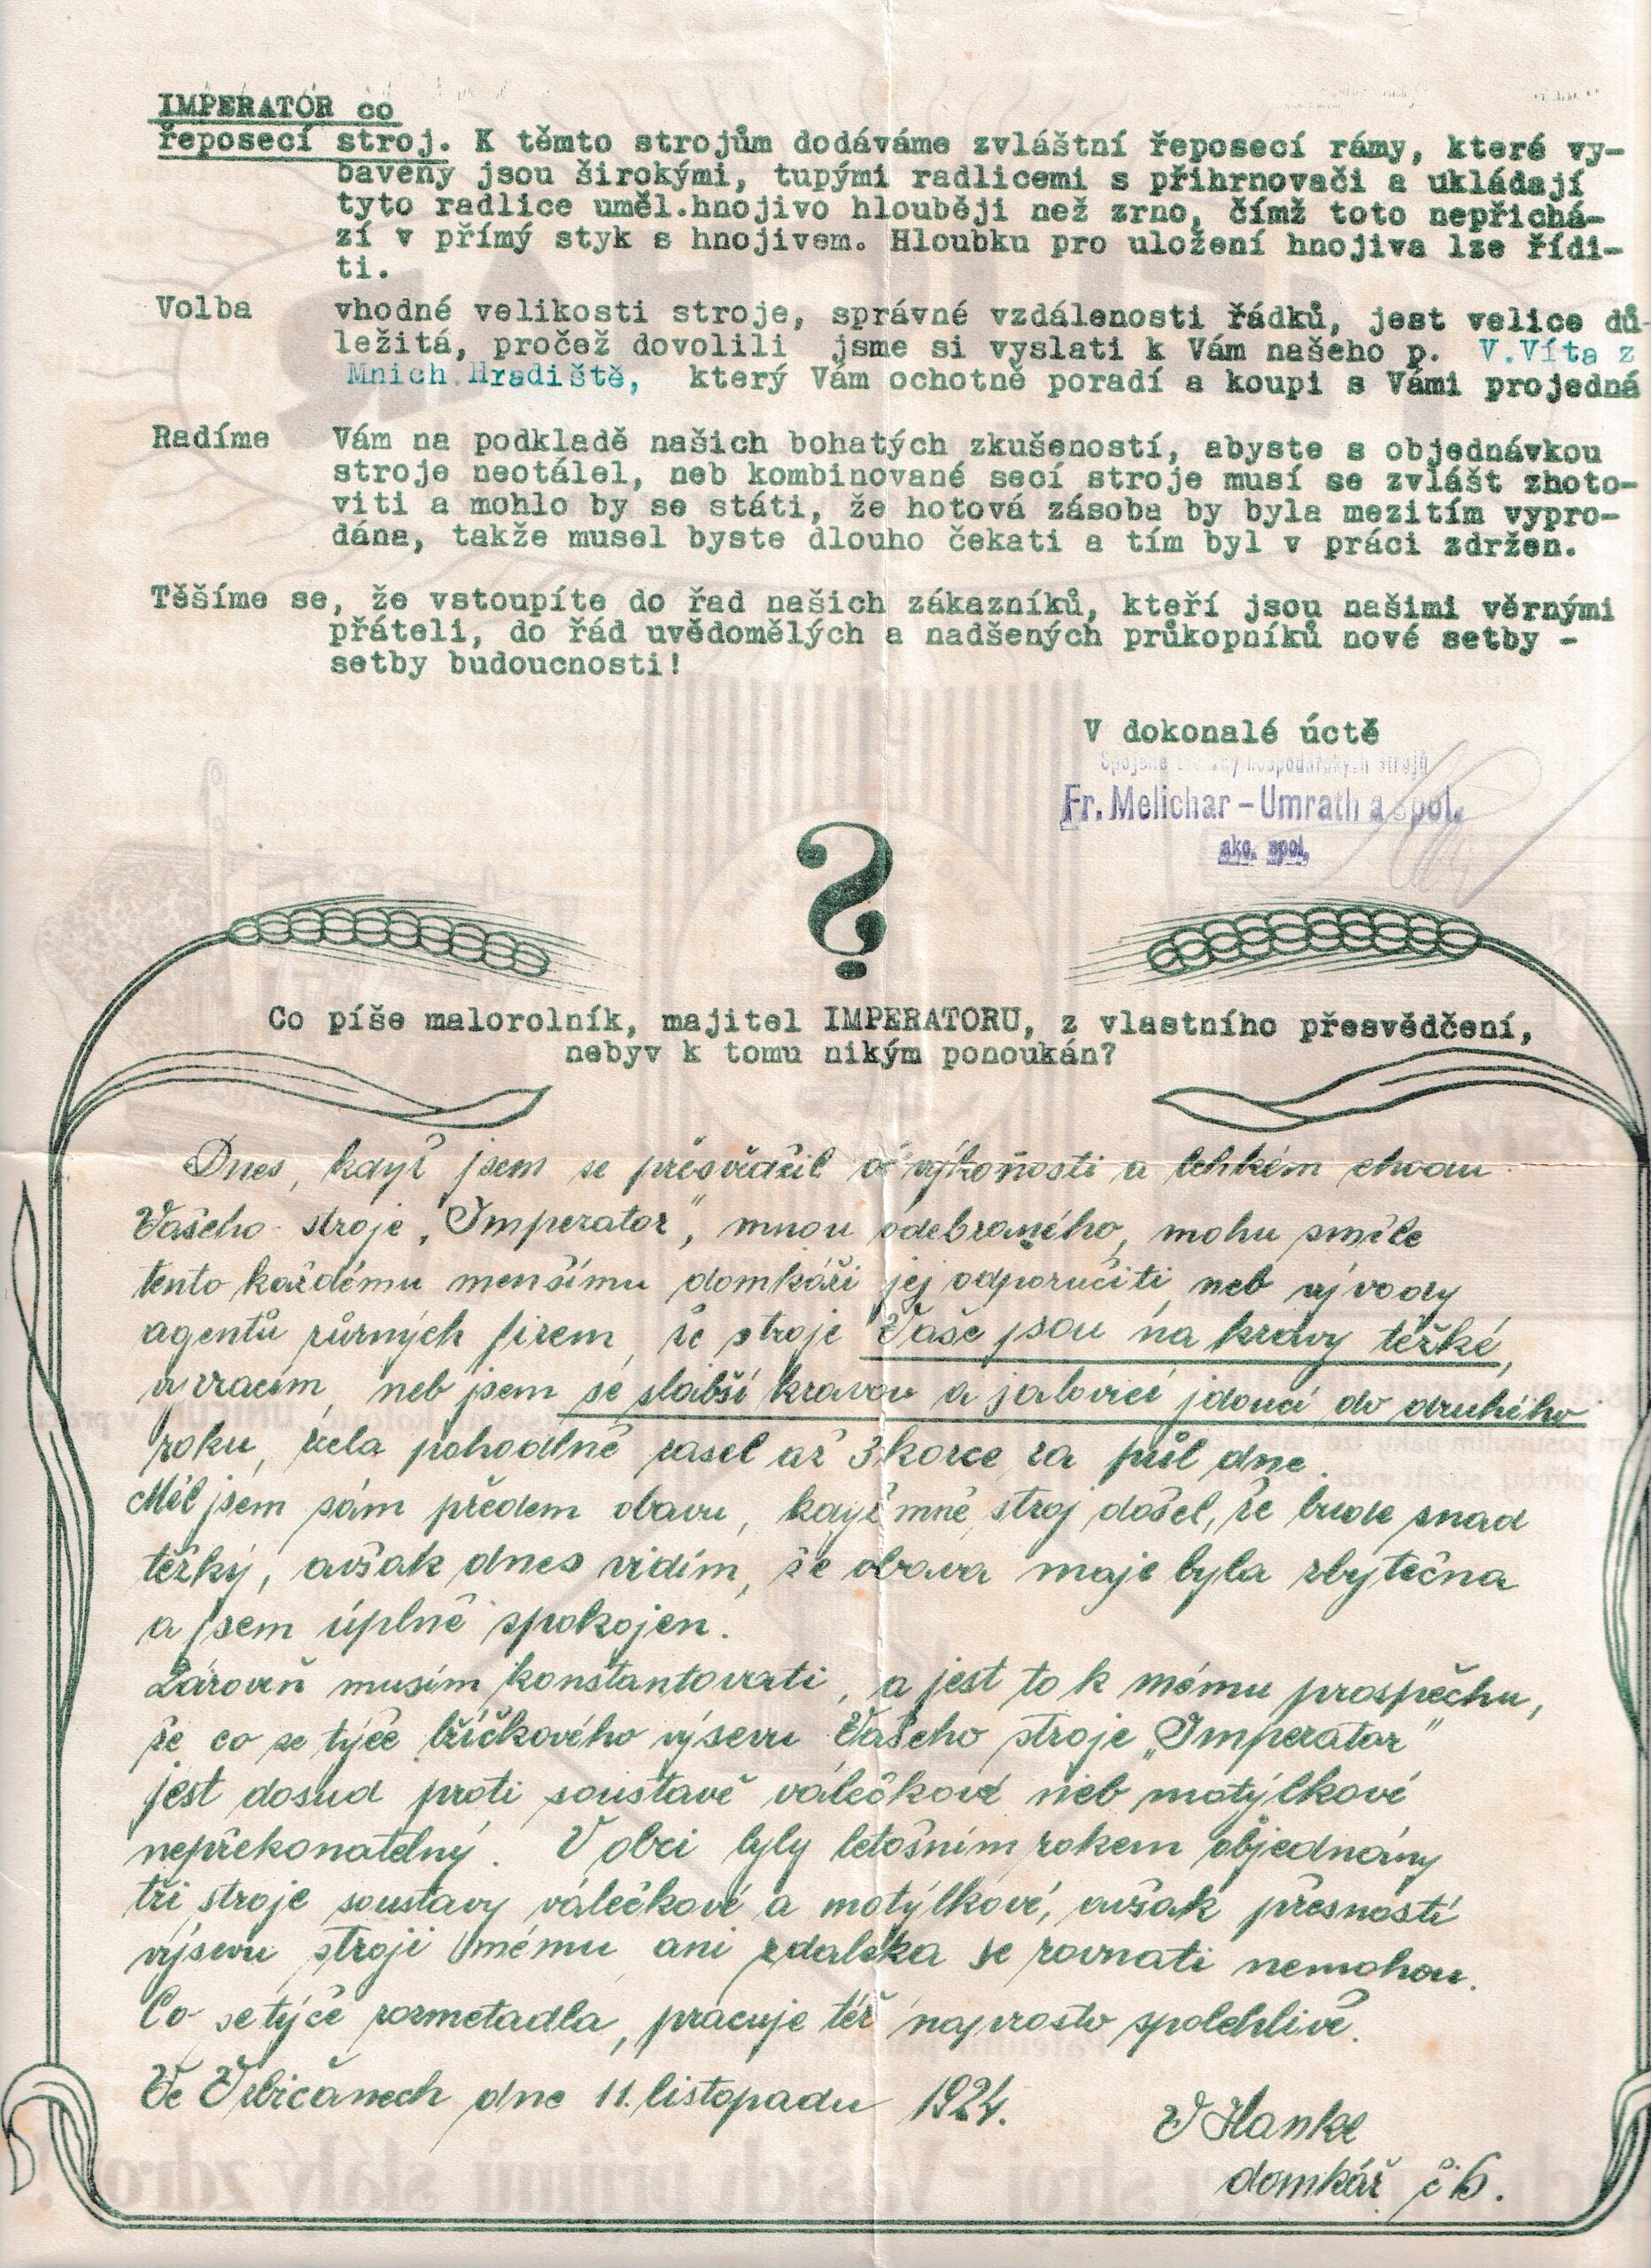 IMPERATOR co
řeposecí stroj. K těmto strojům dodáváme zvláštní řeposecí rámy, které vy-
baveny jsou širokými, tupými radlicemi s přihrnovači a ukládají
tyto radlice uměl.hnojivo hlouběji než zrno, čímž toto nepřichá-
zí v přímý styk s hnojivem. Hloubku pro uložení hnojiva lze řídi-
ti.
Volba vhodné velikosti stroje, správné vzdálenosti řádků, jest velice dů-
ležitá, pročež dovolili jsme si vyslati k Vám našeho p. V.Víta z
Mnich.Hradiště, který Vám ochotně poradí a koupi s Vámi projedná
Radíme Vám na podkladě našich bohatých zkušeností, abyste s objednávkou
stroje neotálel, neb kombinované secí stroje musí se zvlášt zhoto-
viti a mohlo by se státi, že hotová zásoba by byla mezitím vypro-
dána, takže musel byste dlouho čekati a tím byl v práci zdržen.
Těšíme se, že vstoupíte do řad našich zákazníků, kteří jsou našimi věrnými
přáteli, do řád uvědomělých a nadšených průkopníků nové setby -
setby budoucnosti!
V dokonalé úctě
Spojené továrny hospodářských strojů
Fr. Melichar – Umrath a spol.
akc. spol.
?
Co píše malorolník, majitel IMPERATORU, z vlastního přesvědčení,
nebyv k tomu nikým ponoukán?
Dnes, když jsem se přesvědčil o výkonosti a lehkém chodu
Vašeho stroje „Imperator“, mnou odebraného, mohu směle
tento každému menšímu domkáři jej odporučiti, neb vývody
agentů různých firem, že stroje Vaše jsou na krávy těžké,
vyvracím, neb jsem se slabší kravou a jalovicí jdoucí do druhého
roku, zcela pohodlně zasel až 3 korce za půl dne.
Měl jsem sám předem obavu, když mně stroj došel, že bude snad
těžký, avšak dnes vidím, že obava moje byla zbytečna
a jsem úplně spokojen.
Zároveň musím konstantovati, a jest to k mému prospěchu,
že co se týče lžičkového výsevu Vašeho stroje „Imperator“
jest dosud proti soustavě válečkové neb motýlkové
nepřekonatelný. V obci byly letošním rokem objednány
tři stroje soustavy válečkové a motýlkové, avšak přesností
výsevu stroji mému ani zdaleka se rovnati nemohou.
Co se týče rozmetadla, pracuje též naprosto spolehlivě.
Ve Vrbičanech dne 11. listopadu 1924.
V Hanke
domkář č 6.